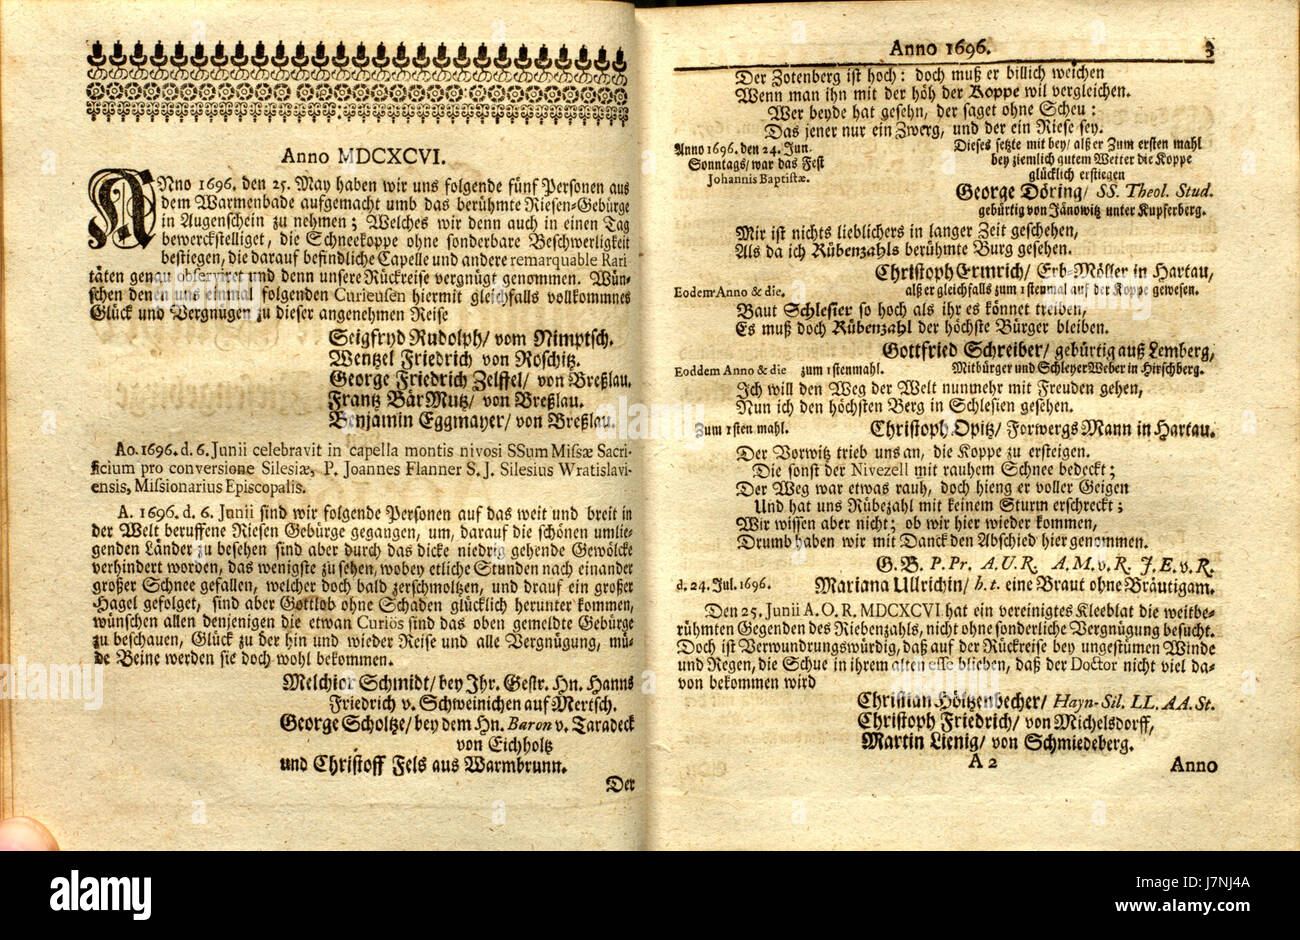 Anno MDCXCVI.
ANno 1696. den 25. May haben wir uns folgende fünf Personen aus
dem Warmenbade aufgemacht umb das berühmte Riesen-Gebürge
in Augenschein zu nehmen; Welches wir denn auch in einen Tag
bewerckstelliget, die Schneekoppe ohne sonderbare Beschwerligkeit
bestiegen, die darauf befindliche Capelle und andere remarquable Rari
täten genau observiret und denn unsere Rückreise vergnügt genommen. Wün-
schen denen uns einmal folgenden Curieusen hiermit gleichfalls vollkommnes
Glück und Vergnügen zu dieser angenehmen Reise
Seigfryd Rudolph/ vom Nimptsch.
Wentzel Friedrich von Roschitz.
George Friedrich Zelffel/ von Breßlau.
Frantz Bär Mutz/ von Breßlau.
Benjamin Eggmayer/ von Breßlau.
Ao. 1696. d. 6. Junii celebravit in capella montis nivosi SSum Missæ Sacri-
ficium pro conversione Silesiæ, P. Joannes Flanner S. J. Silesius Wratislavi-
ensis, Missionarius Episcopalis.
A. 1696. d. 6. Junii sind wir folgende Personen auf das weit und breit in
der Welt beruffene Riesen Gebürge gegangen, um, darauf die schönen umlie-
genden Länder zu besehen sind aber durch das dicke niedrig gehende Gewölcke
verhindert worden, das wenigste zu sehen, wobey etliche Stunden nach einander
großer Schnee gefallen, welcher doch bald zerschmoltzen, und drauf ein großer
Hagel gefolget, sind aber Gottlob ohne Schaden glücklich herunter kommen,
wünschen allen denjenigen die etwan Curiös sind das oben gemeldte Gebürge
zu beschauen, Glück zu der hin und wieder Reise und alle Vergnügung, mü-
de Beine werden sie doch wohl bekommen.
Melchior Schmidt/ bey Ihr. Gestr. Hn. Hanns
Friedrich v. Schweinichen auf Mertsch.
George Scholtze/ bey dem Hn. Baron v. Taradeck
von Eichholtz
und Christoff Fels aus Warmbrunn.
Der
Anno 1696. 3
Der Zotenberg ist hoch: doch muß er billich weichen
Wenn man ihn mit der höh der Koppe wil vergleichen.
Wer beyde hat gesehn, der saget ohne Scheu:
Das jener nur ein Zwerg, und der ein Riese sey.
Anno 1696. den 24. Jun. Dieses setzte mit bey/ alß er Zum ersten mahl
Sonntags/ war das Fest bey ziemlich gutem Wetter die Koppe
Johannis Baptistæ. glücklich erstiegen
George Döring/ SS. Theol. Stud.
gebürtig von Jänowitz unter Kupferberg.
Mir ist nichts lieblichers in langer Zeit geschehen,
Als da ich Rübenzahls berühmte Burg gesehen.
Christoph Ermrich/ Erb-Möller in Hartau,
Eodem Anno & die. alß er gleichfalls zum 1stenmal auf der Koppe gewesen.
Baut Schlesier so hoch als ihr es könnet treiben,
Es muß doch Rübenzahl der höchste Bürger bleiben.
Gottfried Schreiber/ gebürtig auß Lemberg,
Eoddem Anno & die zum 1stenmahl. Mitbürger und Schleyer Weber in Hirschberg.
Ich will den Weg der Welt nunmehr mit Freuden gehen,
Nun ich den höchsten Berg in Schlesien gesehen.
Zum 1sten mahl. Christoph Opitz/ Forwergs Mann in Hartau.
Der Vorwitz trieb uns an, die Koppe zu ersteigen.
Die sonst der Nivezell mit rauhem Schnee bedeckt;
Der Weg war etwas rauh, doch hieng er voller Geigen
Und hat uns Rübezahl mit keinem Sturm erschreckt;
Wir wissen aber nicht; ob wir hier wieder kommen,
Drumb haben wir mit Danck den Abschied hier genommen.
G. B. P. Pr. A. U. R. A. M. v. R. J. E. v. R.
d. 24. Jul. 1696. Mariana Ullrichin/ h. t. eine Braut ohne Bräutigam.
Den 25. Junii A. O. R. MDCXCVI hat ein vereinigtes Kleeblat die weitbe-
rühmten Gegenden des Riebenzahls, nicht ohne sonderliche Vergnügung besucht.
Doch ist Verwundrungswürdig, daß auf der Rückreise bey ungestümen Winde
und Regen, die Schue in ihrem alten esse blieben, daß der Doctor nicht viel da-
von bekommen wird
Christian Höltzenbecher/ Hayn-Sil. LL. AA. St.
Christoph Friedrich/ von Michelsdorff,
Martin Lienig/ von Schmiedeberg.
A 2 Anno
alamy
Image ID: J7NJ4A
www.alamy.com